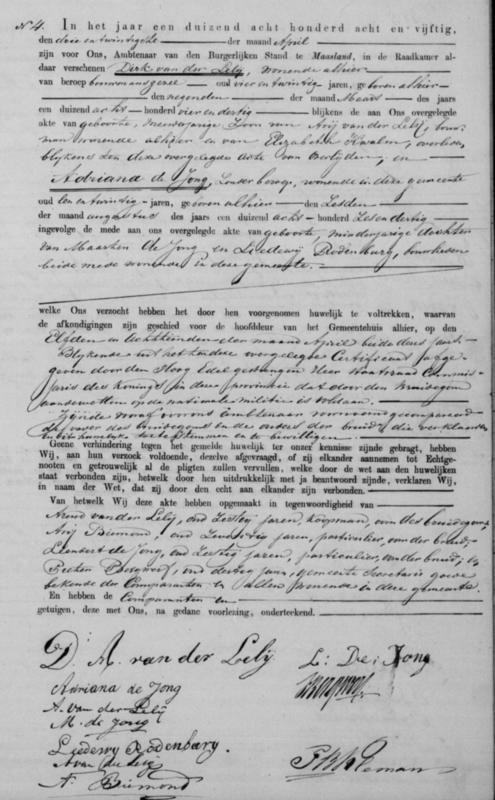 No 4. In het jaar een duizend acht honderd acht en vijftig,
den drie en twintigste der maand April
zijn voor Ons, Ambtenaar van den Burgerlijken Stand te Maasland, in de Raadkamer al-
daar verschenen Dirk van der Lelij, wonende alhier
van beroep bouwmansgezel oud vier en twintig jaren, geboren alhier
den negenden der maand Maart des jaars
een duizend acht honderd vier en dertig blijkens de aan Ons overgelegde
akte van geboorte, meerderjarige Zoon van Arij van der Lelij, bouw-
man wonende alhier en van Elizabeth overleden
blijkens de overgelegde acte van overlijden, en
Adriana de Jong, zonder beroep, wonende in deze gemeente
oud een en twintig jaren, geboren alhier den zesden
der maand augustus des jaars een duizend acht honderd zes en dertig
ingevolge de mede aan ons overgelegde akte van geboorte, minderjarige dochter
van Maarten de Jong en Liedewij Rodenburg, bouwlieden
beide mede wonende in deze gemeente.
welke Ons verzocht hebben het door hen voorgenomen huwelijk te voltrekken, waarvan
de afkondigingen zijn geschied voor de hoofddeur van het Gemeentehuis alhier, op den
Elfden en achttienden der maand April beide dezes jaars.
Blijkende uit het hierbij overgelegde Certificaat afge-
geven door den Hoog Edel gestrengen Heer Staatsraad Commis-
saris des Konings in deze provincie dat door den bruidegom
aan de wetten op de nationale militie is voldaan.
Zijnde voor ons Ambtenaar voornoemd gecompareerd
de vader des bruidegoms en de ouders der bruid, die verklaarden
in dit huwelijk toe te stemmen en te bewilligen.
Geene verhindering tegen het gemelde huwelijk ter onzer kennisse zijnde gebragt, hebben
Wij, aan hun verzoek voldoende, dezelve afgevraagd, of zij elkander aannemen tot Echtge-
nooten en getrouwelijk al de pligten zullen vervullen, welke door de wet aan den huwelijken
staat verbonden zijn, hetwelk door hen uitdrukkelijk met ja beantwoord zijnde, verklaren Wij,
in naam der Wet, dat zij door den echt aan elkander zijn verbonden.
Van hetwelk Wij deze akte hebben opgemaakt in tegenwoordigheid van
Arend van der Lelij, oud zestig jaren, koopman, oom des bruidegoms
Arij Biemond, oud jaren, particulier, oom der bruid,
Leendert de Jong, oud zestig jaren, particulier, oom der bruid; en
oud dertig jaren, gemeente Secretaris goede
bekende der Comparanten en allen wonende in deze gemeente.
En hebben de Comparanten en
getuigen, deze met Ons, na gedane voorlezing, onderteekend.
D. A. van der Lelij L: De: Jong
Adriana de Jong
A. van der Lelij
M. de Jong
Liedewy Rodenburg.
A van der Lelij
A. Biemond